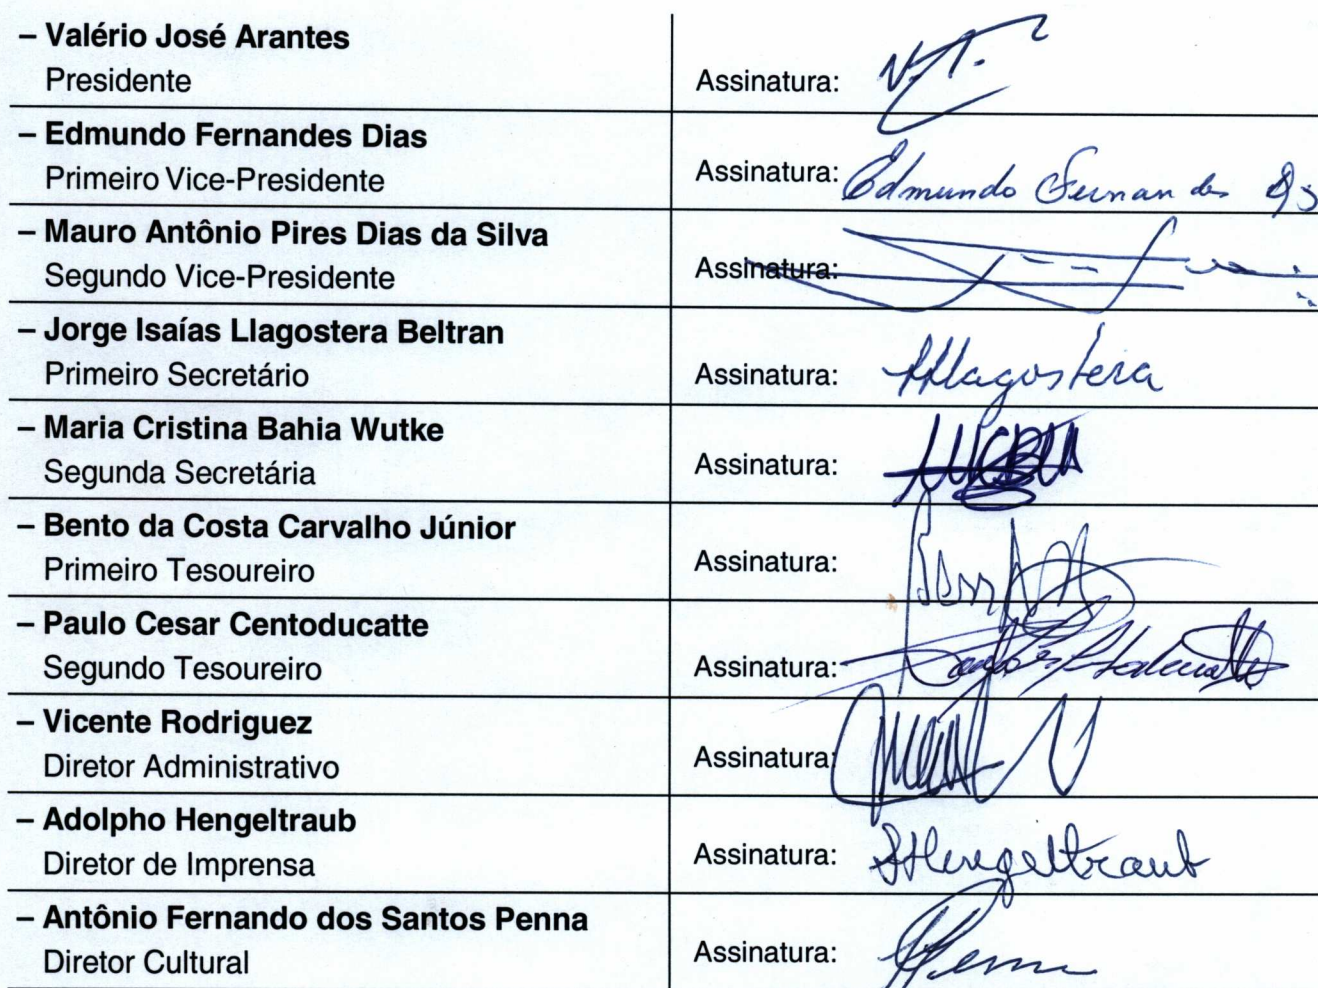 – Valério José Arantes
Presidente
Assinatura: V.A.
– Edmundo Fernandes Dias
Primeiro Vice-Presidente
Assinatura: Edmundo Fernandes Dias
– Mauro Antônio Pires Dias da Silva
Segundo Vice-Presidente
Assinatura:
– Jorge Isaías Llagostera Beltran
Primeiro Secretário
Assinatura: Llagostera
– Maria Cristina Bahia Wutke
Segunda Secretária
Assinatura:
– Bento da Costa Carvalho Júnior
Primeiro Tesoureiro
Assinatura:
– Paulo Cesar Centoducatte
Segundo Tesoureiro
Assinatura:
– Vicente Rodriguez
Diretor Administrativo
Assinatura:
– Adolpho Hengeltraub
Diretor de Imprensa
Assinatura: AHengeltraub
– Antônio Fernando dos Santos Penna
Diretor Cultural
Assinatura: